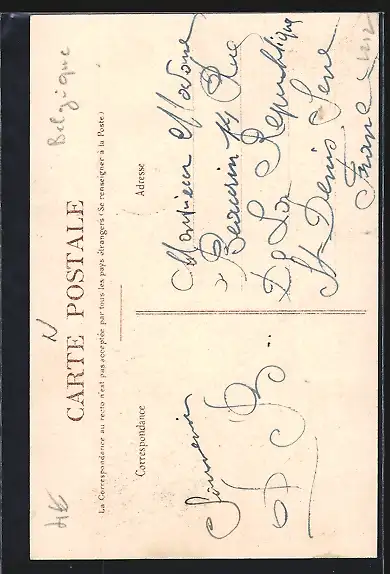 Belgique
CARTE POSTALE
La Correspondance au recto n'est pas acceptée par tous les pays étrangers (Se renseigner à la Poste)
Correspondance
Adresse
Souvenir
Monsieur Madame
Beaudoin 14 Rue
De La République
St Denis Seine
France